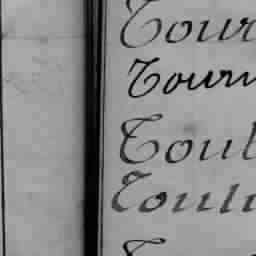 Tour
Tourn
Toul
Toulo